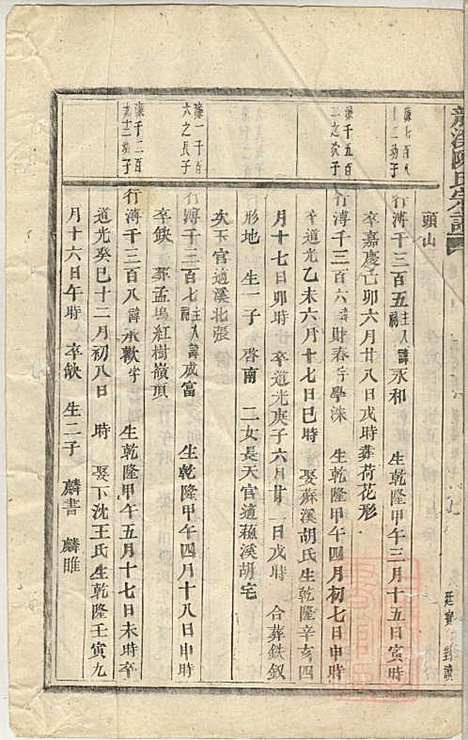 龍溪陳氏宗譜
頭山
廉七百八
十三幼子
行溥千三百五主人祠諱永和 生乾隆甲午三月十五日寅時
卒嘉慶己卯六月廿八日戌時葬荷花形
廉千五百
之次子
行溥千三百六諱財春行學洙 生乾隆甲午四月初七日申時
卒道光乙未六月十七日巳時 娶蘇溪胡氏生乾隆辛亥四
月十七日卯時 卒道光庚子六月廿 日戌時 合葬鉄釵
形地 生一子 啓南 二女長天官適蘓溪胡宅
次玉官適溪北張
廉一千百
六之長子
行溥千三百七主人祠諱成富 生乾隆甲午四月十八日申時
卒缺 葬孟塢紅樹嶺頂
廉千二百
十三幼子
行溥千三百八諱永歡字 生乾隆甲午五月十七日未時卒
道光癸巳十二月初八日 時 娶下沈王氏生乾隆壬寅九
月十六日午時 卒缺 生二子 麟書 麟睢